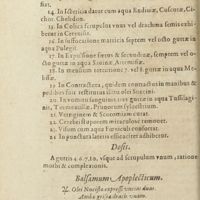 fiat.
14. In Ictericia datur cum aqua Endiuiæ, Cuscutæ, Ci-
chor. Chelidon.
15. In Colica scrupulus vnus vel drachma semis exhi-
betur in Ceruisia.
16. In suffocatione matricis septem vel octo guttæ in
aqua Pulegij.
17. In Expulsione fœtus & secundinæ, septem vel o-
cto guttæ in aqua Sauinæ, Artemisiæ.
18. In mensium retentione 7. vel 8. guttæ in aqua Me-
lissæ.
19. In Contractura, quidem contractis manibus &
pedibus fuit restitutus oleo Succini.
20. In vomitu sanguinis tres guttæ in aqua Tussilagi-
nis, Tormentillæ, Prunorum sylvestrium.
21. Vertiginem & Scotomiam curat.
22. Cerebri stuporem miraculose remouet.
23. Visum cum aqua Fœniculi confortat.
24. In punctura lateris efficaciter adhibetur.
Dosis.
A guttis 4. 6. 7. 10. vsque ad scrupulum vnum, ratione
morbi & complexionis.
Balsamum Apoplecticum.
℞. Olei Nucistæ expressi vncias duas.
Ambræ griseæ drach. vnam.